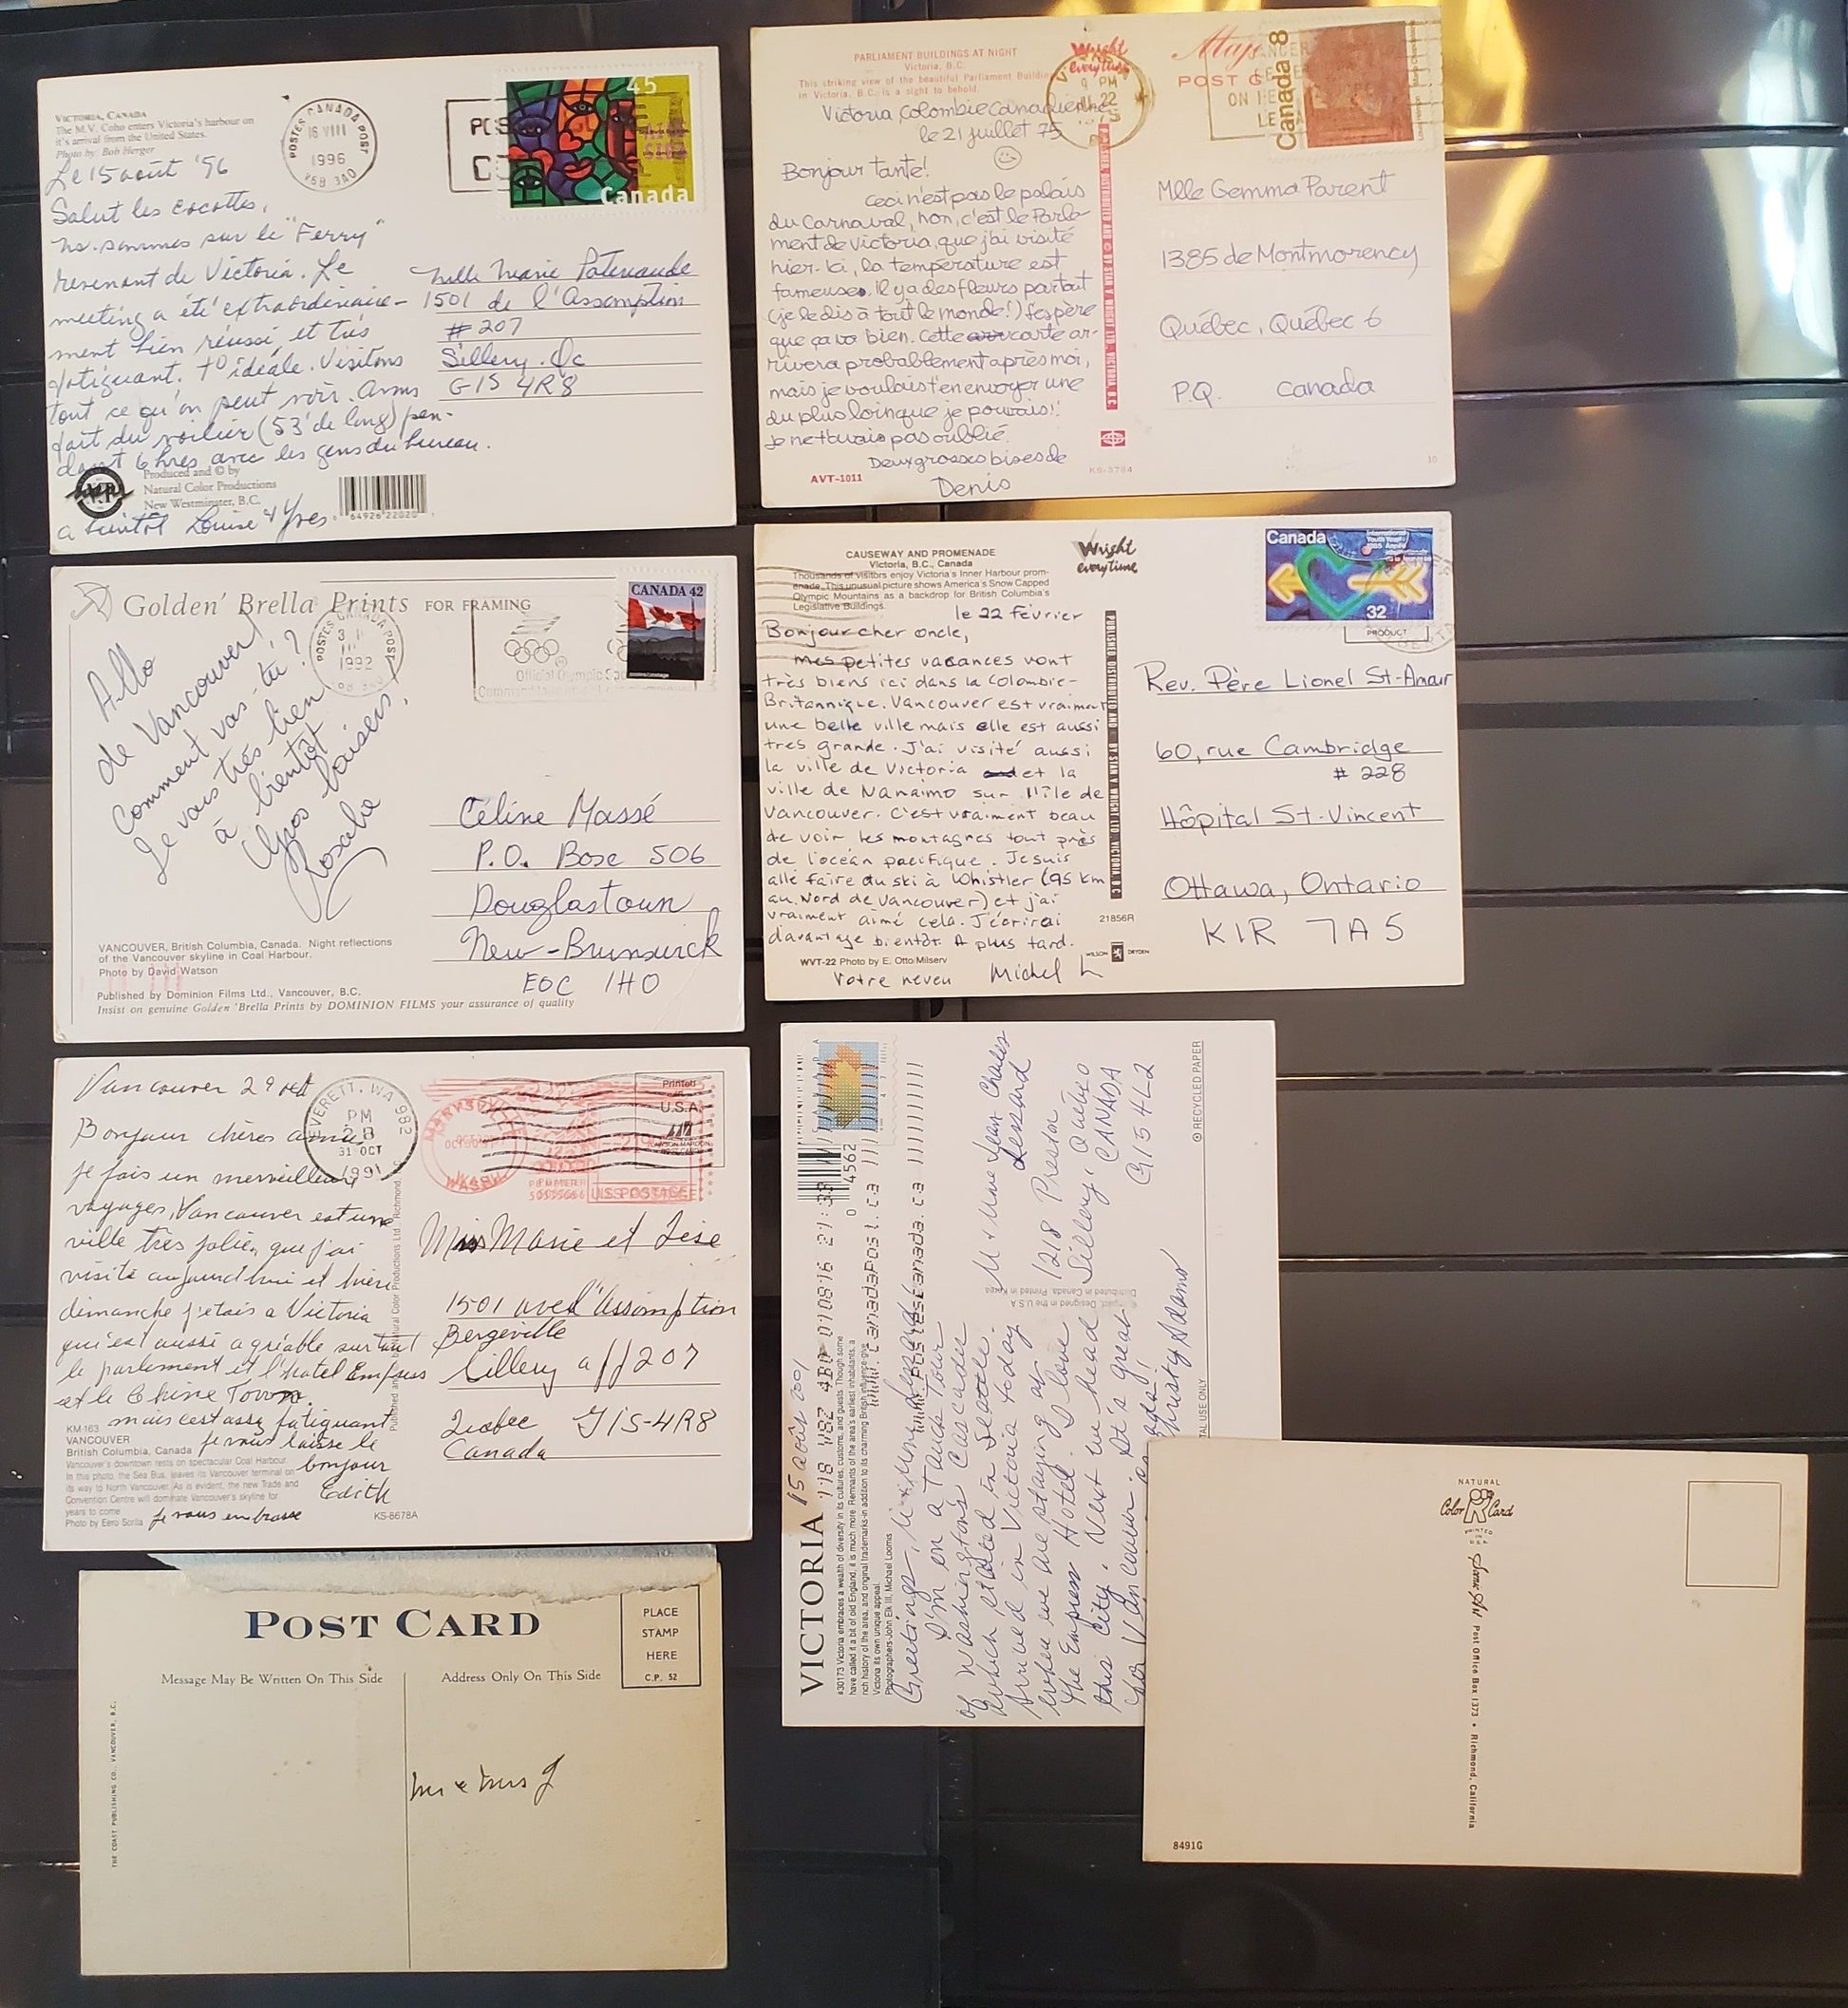 VICTORIA, CANADA
The M.V. Coho enters Victoria's harbour on
it's arrival from the United States.
Photo by: Bob Herger
Le 15 août '96
Salut les cocottes,
ns. sommes sur le "Ferry"
revenant de Victoria. Le
meeting a été extraordinaire-
ment bien réussi, et très
fatiguant. t° idéale. Visitons
tout ce qu'on peut voir. Avons
fait du voilier (53' de long) pen-
dant 6 hres avec les gens du bureau.
Produced and © by
Natural Color Productions
New Westminster, B.C.
64926 22020
a bientôt Louise & Yves
POSTES CANADA POST
16 VIII
1996
V6B 3A0
45
Canada
Mlle Marie Patenaude
1501 de l'Assomption
# 207
Sillery. Qc
G1S 4R8
PARLIAMENT BUILDINGS AT NIGHT
Victoria, B.C.
This striking view of the beautiful Parliament Buildin
in Victoria, B.C., is a sight to behold.
Wright
everytime
POST C
Canada 8
9 PM
22
Victoria Colombie Canadienne
le 21 juillet 75
Bonjour tante!
Ceci n'est pas le palais
du Carnaval, non, c'est le Parle-
ment de Victoria, que j'ai visité
hier. Ici, la température est
fameuse. Il y a des fleurs partout
(je le dis à tout le monde!) J'espère
que ça va bien. Cette carte ar-
rivera probablement après moi,
mais je voulais t'en envoyer une
du plus loin que je pouvais!!
Je ne t'avais pas oublié.
Deux grosses bises de
Denis
AVT-1011
KS-3784
10
Mlle Gemma Parent
1385 de Montmorency
Québec, Québec 6
P.Q. Canada
Golden' Brella Prints FOR FRAMING
POSTES CANADA POST
1992
Official Olympic
CANADA 42
Allo
de Vancouver!
Comment vas-tu?
Je vais très bien
à bientôt
Gros baisers.
Rosalie
Céline Massé
P.O. Boxe 506
Douglastown
New-Brunswick
EOC 1HO
VANCOUVER, British Columbia, Canada. Night reflections
of the Vancouver skyline in Coal Harbour.
Photo by David Watson
Published by Dominion Films Ltd., Vancouver, B.C.
Insist on genuine Golden 'Brella Prints by DOMINION FILMS your assurance of quality
CAUSEWAY AND PROMENADE
Victoria, B.C., Canada
Thousands of visitors enjoy Victoria's Inner Harbour prom-
enade. This unusual picture shows America's Snow Capped
Olympic Mountains as a backdrop for British Columbia's
Legislative Buildings.
Wright
everytime
Canada
32
PRODUCT
le 22 Février
Bonjour cher oncle,
Mes petites vacances vont
très biens ici dans la Colombie-
Britannique. Vancouver est vraiment
une belle ville mais elle est aussi
tres grande. J'ai visité aussi
la ville de Victoria et la
ville de Nanaimo sur l'île de
Vancouver. C'est vraiment beau
de voir les montagnes tout près
de l'océan pacifique. Je suis
allé faire du ski à Whistler (95 km
au Nord de Vancouver) et j'ai
vraiment aimé cela. J'écrirai
d'avantage bientôt. A plus tard.
WVT-22 Photo by E. Otto/Milserv
Votre neveu Michel
21856R
Rev. Père Lionel St-Amour
60, rue Cambridge
# 228
Hôpital St-Vincent
Ottawa, Ontario
K1R 7A5
Vancouver 29 oct
Bonjour chères amie,
je fais un merveilleux
voyages, Vancouver est une
ville très jolie, que j'ai
visité aujourd'hui et hière
dimanche j'etais a Victoria
qui est aussi agréable surtout
le parlement et l'hotel Empress
et le Chine Town.
mais c'est assez fatiguant
je vous laisse le
bonjour
Edith
je vous embrasse
EVERETT, WA 982
PM
31 OCT
1991
MARYSVILLE
WASH
U.S. POSTAGE
Printed
in
U.S.A.
KM-163
VANCOUVER
British Columbia, Canada
Vancouver's downtown rests on spectacular Coal Harbour.
In this photo, the Sea Bus, leaves its Vancouver terminal on
its way to North Vancouver. As is evident, the new Trade and
Convention Centre will dominate Vancouver's skyline for
years to come
Photo by Eero Sorila
KS-8678A
Miss Marie et Lise
1501 ave de l'Assomption
Bergeville
Sillery app 207
Quebec G1S-4R8
Canada
VICTORIA 15 août 2001
#30173 Victoria embraces a wealth of diversity in its cultures, customs, and guests. Though some
have called it a bit of old England, it is much more. Remnants of the area's earliest inhabitants, a
rich history of the area, and original trademarks-in addition to its charming British influence-give
Victoria its own unique appeal.
Photographers-John Elk III, Michael Looms
Greetings, M & Mme Lessard!
I'm on a Tauck Tour
of Washington's Cascades
which started in Seattle.
Arrived in Victoria today
where we are staying at
the Empress Hotel. I love
this city. Next we head
for Vancouver. It's great
Christy Adams
0 4562
www.canadapost.ca
www.postescanada.ca
M + Mme Jean Charles
Lessard
1218 Preston
Sillery, Québec
CANADA
G1S 4L2
Designed in the U.S.A.
Distributed in Canada. Printed in Korea
© RECYCLED PAPER
TAL USE ONLY
POST CARD
Message May Be Written On This Side
Address Only On This Side
PLACE
STAMP
HERE
C.P. 52
THE COAST PUBLISHING CO., VANCOUVER, B.C.
Mr & Mrs J
NATURAL
Color Card
PRINTED
IN
U.S.A.
Post Office Box 1373 • Richmond, California
8491G